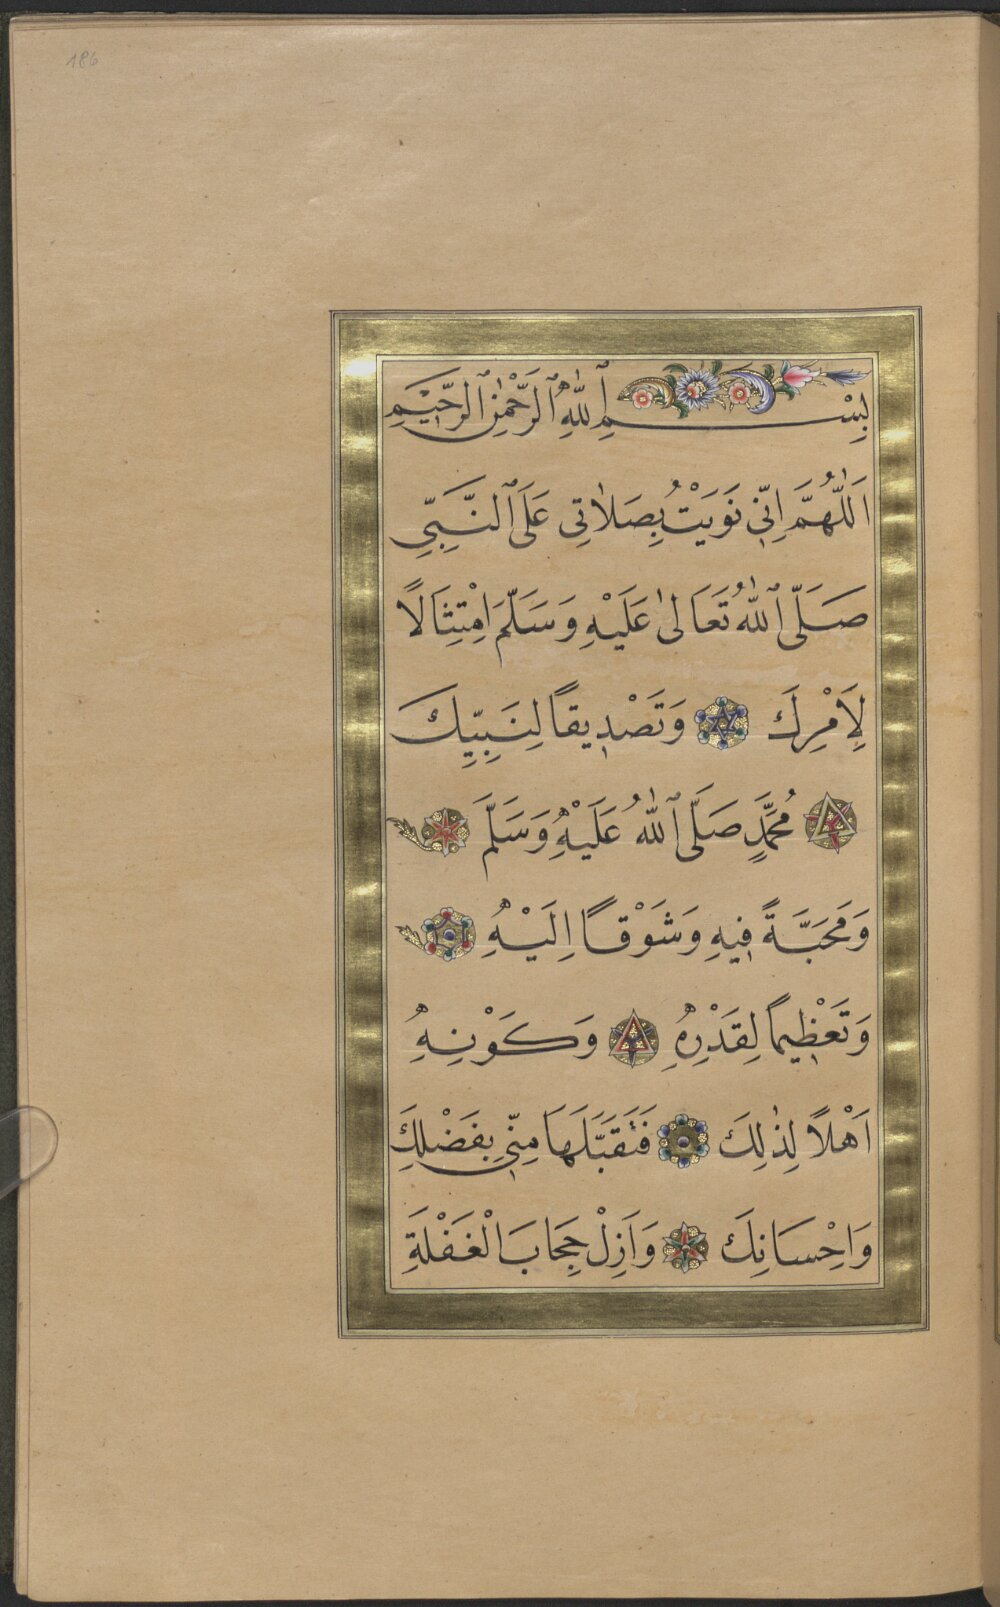 186
بِسْمِ ٱللّٰهِ ٱلرَّحْمٰنِ ٱلرَّحِيمِ
اَللّٰهُمَّ اِنِّي نَوَيْتُ بِصَلَاتِى عَلَى ٱلنَّبِىِّ
صَلَّى ٱللّٰهُ تَعَالٰى عَلَيْهِ وَسَلَّمَ اِمْتِثَالًا
لِاَمْرِكَ وَتَصْدِيقًا لِنَبِيِّكَ
مُحَمَّدٍ صَلَّى ٱللّٰهُ عَلَيْهِ وَسَلَّمَ
وَمَحَبَّةً فِيهِ وَشَوْقًا اِلَيْهِ
وَتَعْظِيمًا لِقَدْرِهِ وَكَوْنِهِ
اَهْلًا لِذٰلِكَ فَتَقَبَّلَهَا مِنِّي بِفَضْلِكَ
وَاِحْسَانِكَ وَاَزِلْ حِجَابَ الْغَفْلَةِ